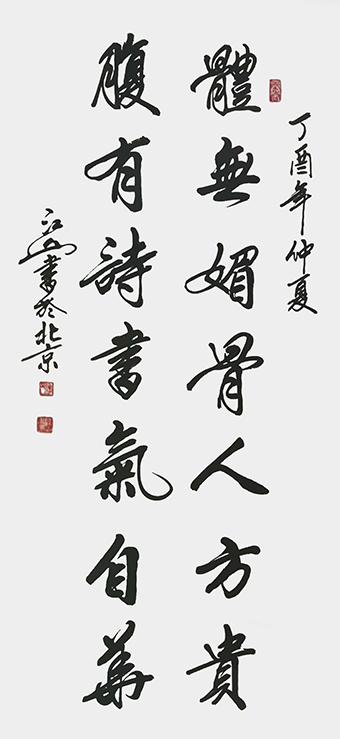 丁酉年仲夏
體無媚骨人方貴
腹有詩書氣自華
江山書於北京